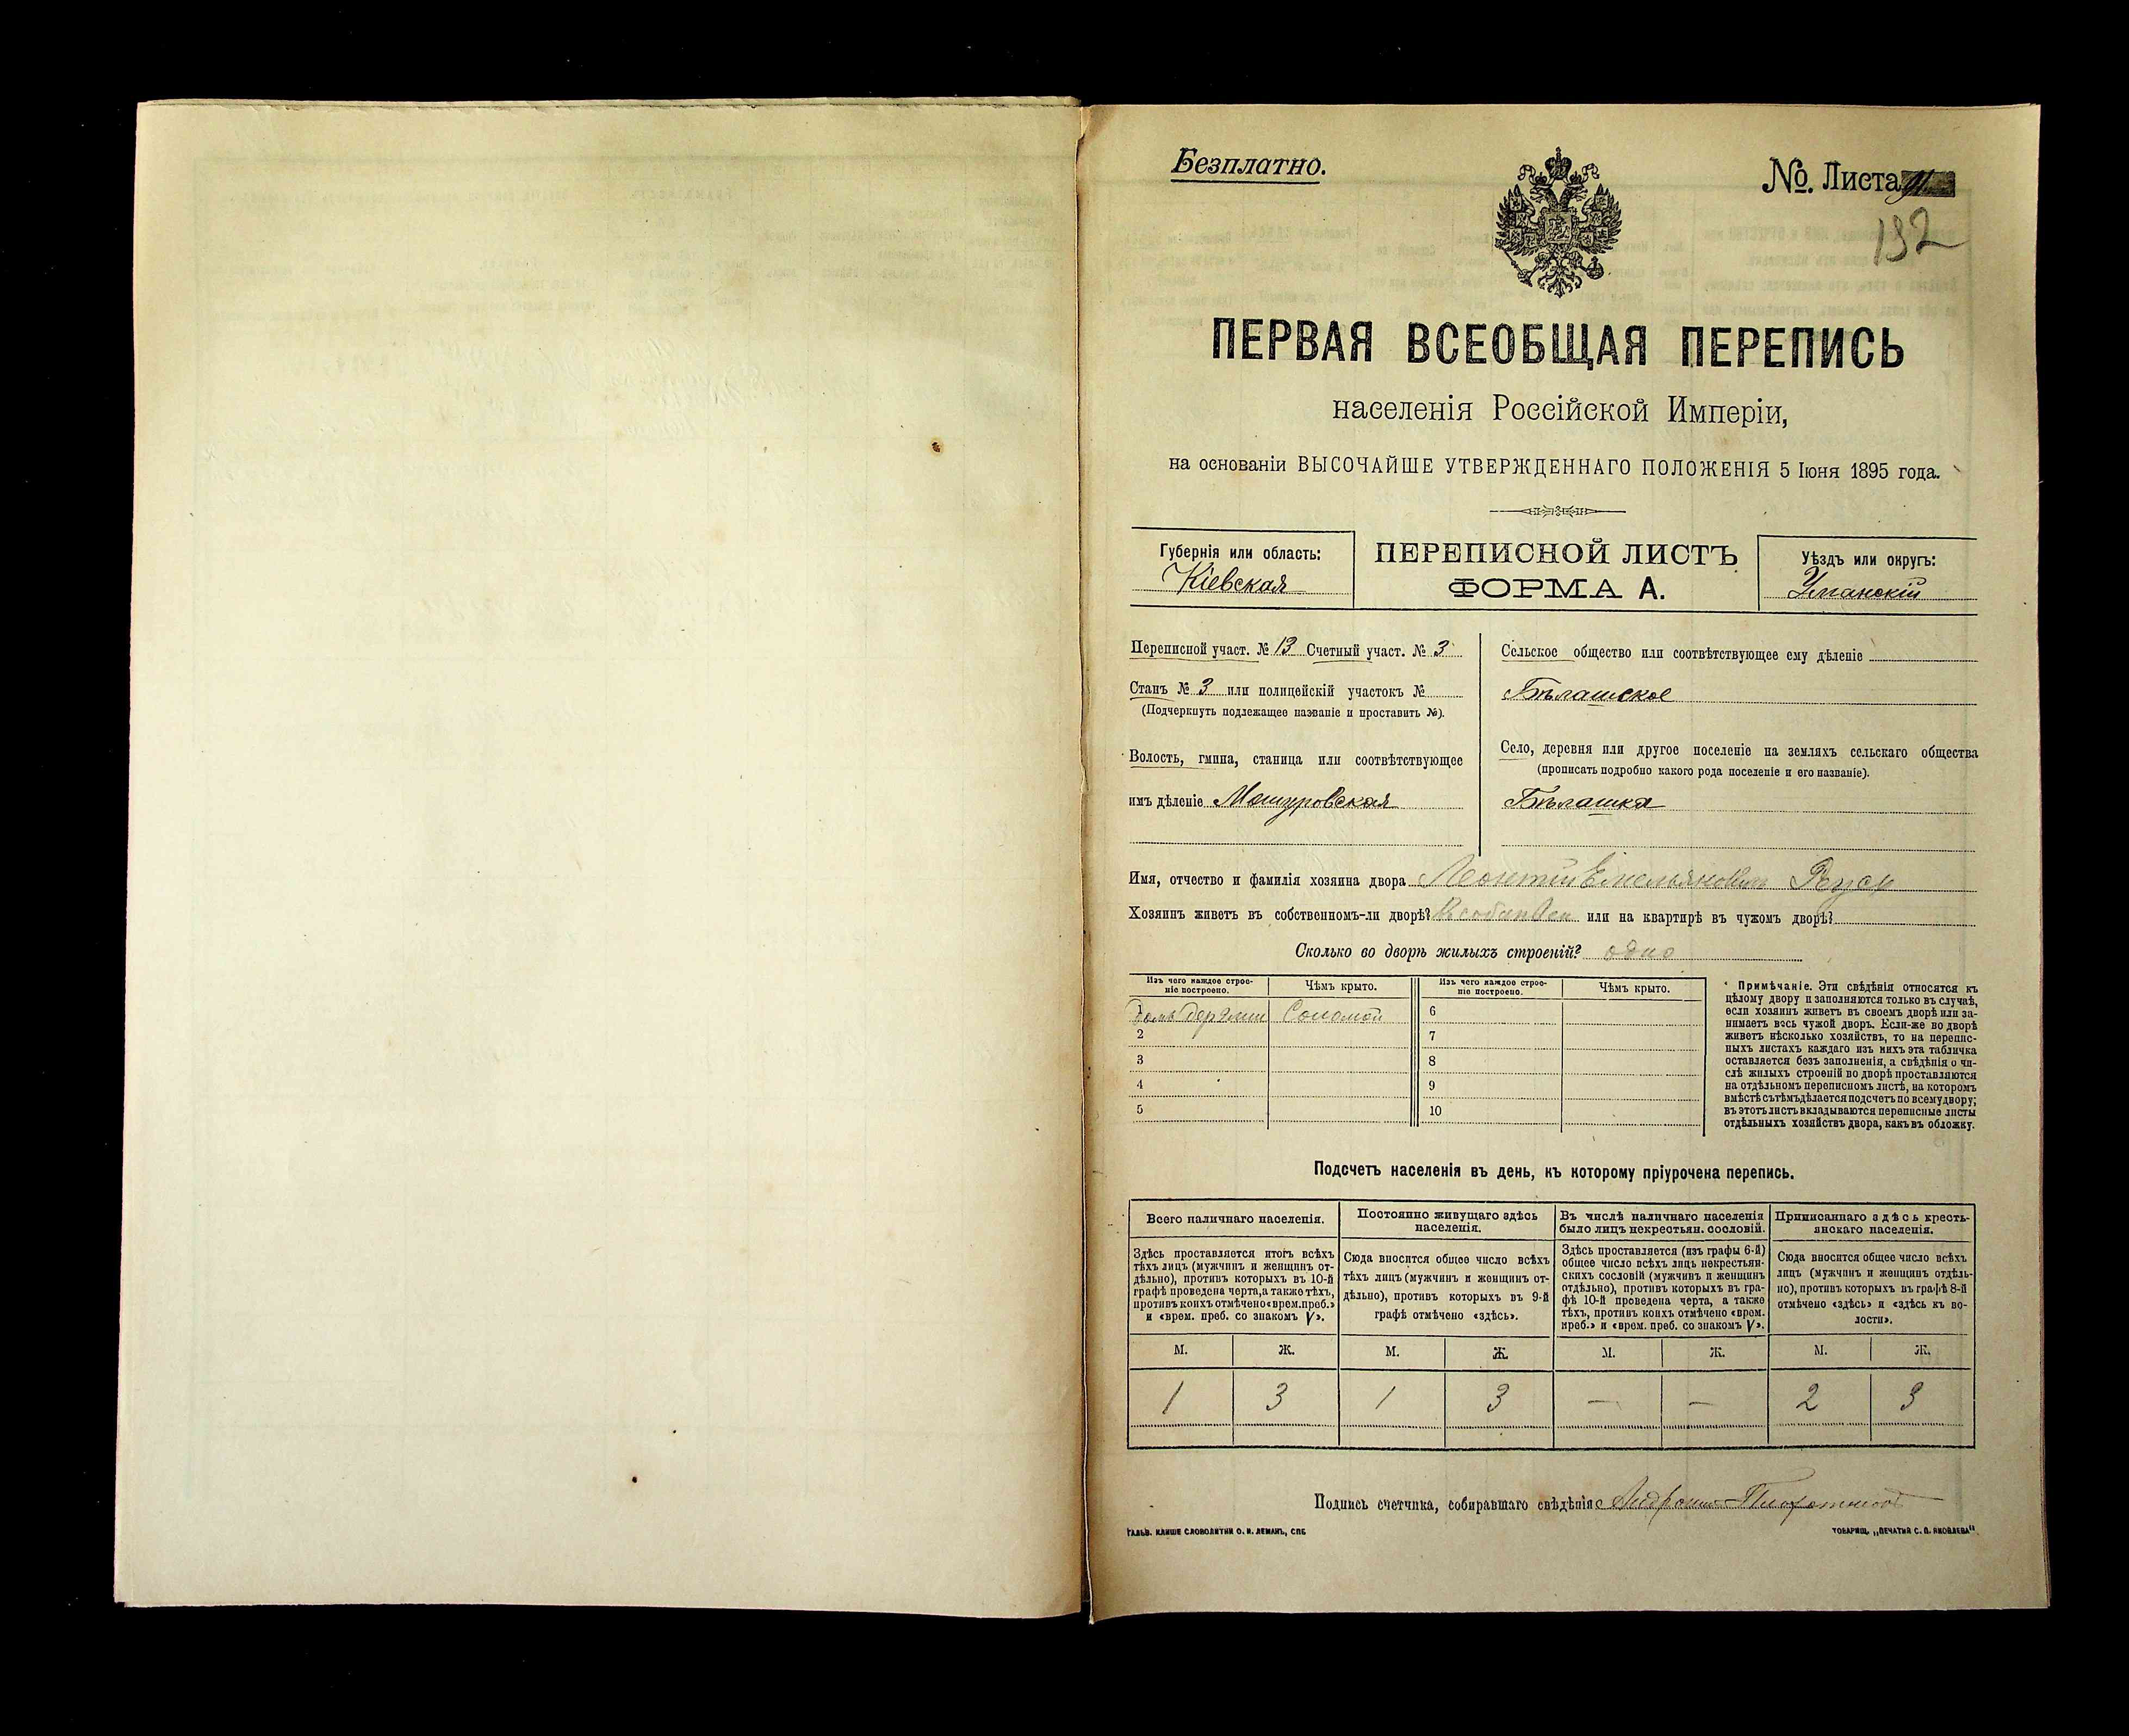 Безплатно.
№ Листа 91
132
ПЕРВАЯ ВСЕОБЩАЯ ПЕРЕПИСЬ
населенія Россійской Имперіи,
на основаніи ВЫСОЧАЙШЕ УТВЕРЖДЕННАГО ПОЛОЖЕНІЯ 5 Іюня 1895 года.
Губернія или область:
Кіевская
ПЕРЕПИСНОЙ ЛИСТЪ
ФОРМА А.
Уѣздъ или округъ:
Уманскій
Переписной участ. № 13 Счетный участ. № 3
Станъ № 3 или полицейскій участокъ №
(Подчеркнуть подлежащее названіе и проставить №).
Волость, гмина, станица или соотвѣтствующее
имъ дѣленіе Мошуровская
Сельское общество или соотвѣтствующее ему дѣленіе
Бѣлашское
Село, деревня или другое поселеніе на земляхъ сельскаго общества
(прописать подробно какого рода поселеніе и его названіе).
Бѣлашка
Имя, отчество и фамилія хозяина двора Леонтій Емельяновичъ
Хозяинъ живетъ въ собственномъ-ли дворѣ? или на квартирѣ въ чужомъ дворѣ?
Сколько во дворѣ жилыхъ строеній? одно
Изъ чего каждое строе-
ніе построено.
Чѣмъ крыто.
Изъ чего каждое строе-
ніе построено.
Чѣмъ крыто.
1 домъ Соломой
2
3
4
5
6
7
8
9
10
Примѣчаніе. Эти свѣдѣнія относятся къ
цѣлому двору и заполняются только въ случаѣ,
если хозяинъ живетъ въ своемъ дворѣ или за-
нимаетъ весь чужой дворъ. Если-же во дворѣ
живетъ нѣсколько хозяйствъ, то на перепис-
ныхъ листахъ каждаго изъ нихъ эта табличка
оставляется безъ заполненія, а свѣдѣнія о чи-
слѣ жилыхъ строеній во дворѣ проставляются
на отдѣльномъ переписномъ листѣ, на которомъ
вмѣстѣ съ тѣмъ дѣлается подсчетъ по всему двору;
въ этотъ листъ вкладываются переписные листы
отдѣльныхъ хозяйствъ двора, какъ въ обложку.
Подсчетъ населенія въ день, къ которому пріурочена перепись.
Всего наличнаго населенія.
Здѣсь проставляется итогъ всѣхъ
тѣхъ лицъ (мужчинъ и женщинъ от-
дѣльно), противъ которыхъ въ 10-й
графѣ проведена черта, а также тѣхъ,
противъ коихъ отмѣчено «врем. преб.»
и «врем. преб. со знакомъ V».
Постоянно живущаго здѣсь
населенія.
Сюда вносится общее число всѣхъ
тѣхъ лицъ (мужчинъ и женщинъ от-
дѣльно), противъ которыхъ въ 9-й
графѣ отмѣчено «здѣсь».
Въ числѣ наличнаго населенія
было лицъ некрестьян. сословій.
Здѣсь проставляется (изъ графы 6-й)
общее число всѣхъ лицъ некрестьян-
скихъ сословій (мужчинъ и женщинъ
отдѣльно), противъ которыхъ въ гра-
фѣ 10-й проведена черта, а также
тѣхъ, противъ коихъ отмѣчено «врем.
преб.» и «врем. преб. со знакомъ V».
Приписаннаго здѣсь кресть-
янскаго населенія.
Сюда вносится общее число всѣхъ
лицъ (мужчинъ и женщинъ отдѣль-
но), противъ которыхъ въ графѣ 8-й
отмѣчено «здѣсь» и «здѣсь къ во-
лости».
М. Ж. М. Ж. М. Ж. М. Ж.
1 3 1 3 — — 2 3
Подпись счетчика, собиравшаго свѣдѣнія
ГАЛЬВ. КЛИШЕ СЛОВОЛИТНИ О. И. ЛЕМАНЪ, СПБ
ТОВАРИЩ. „ПЕЧАТНЯ С. П. ЯКОВЛЕВА"